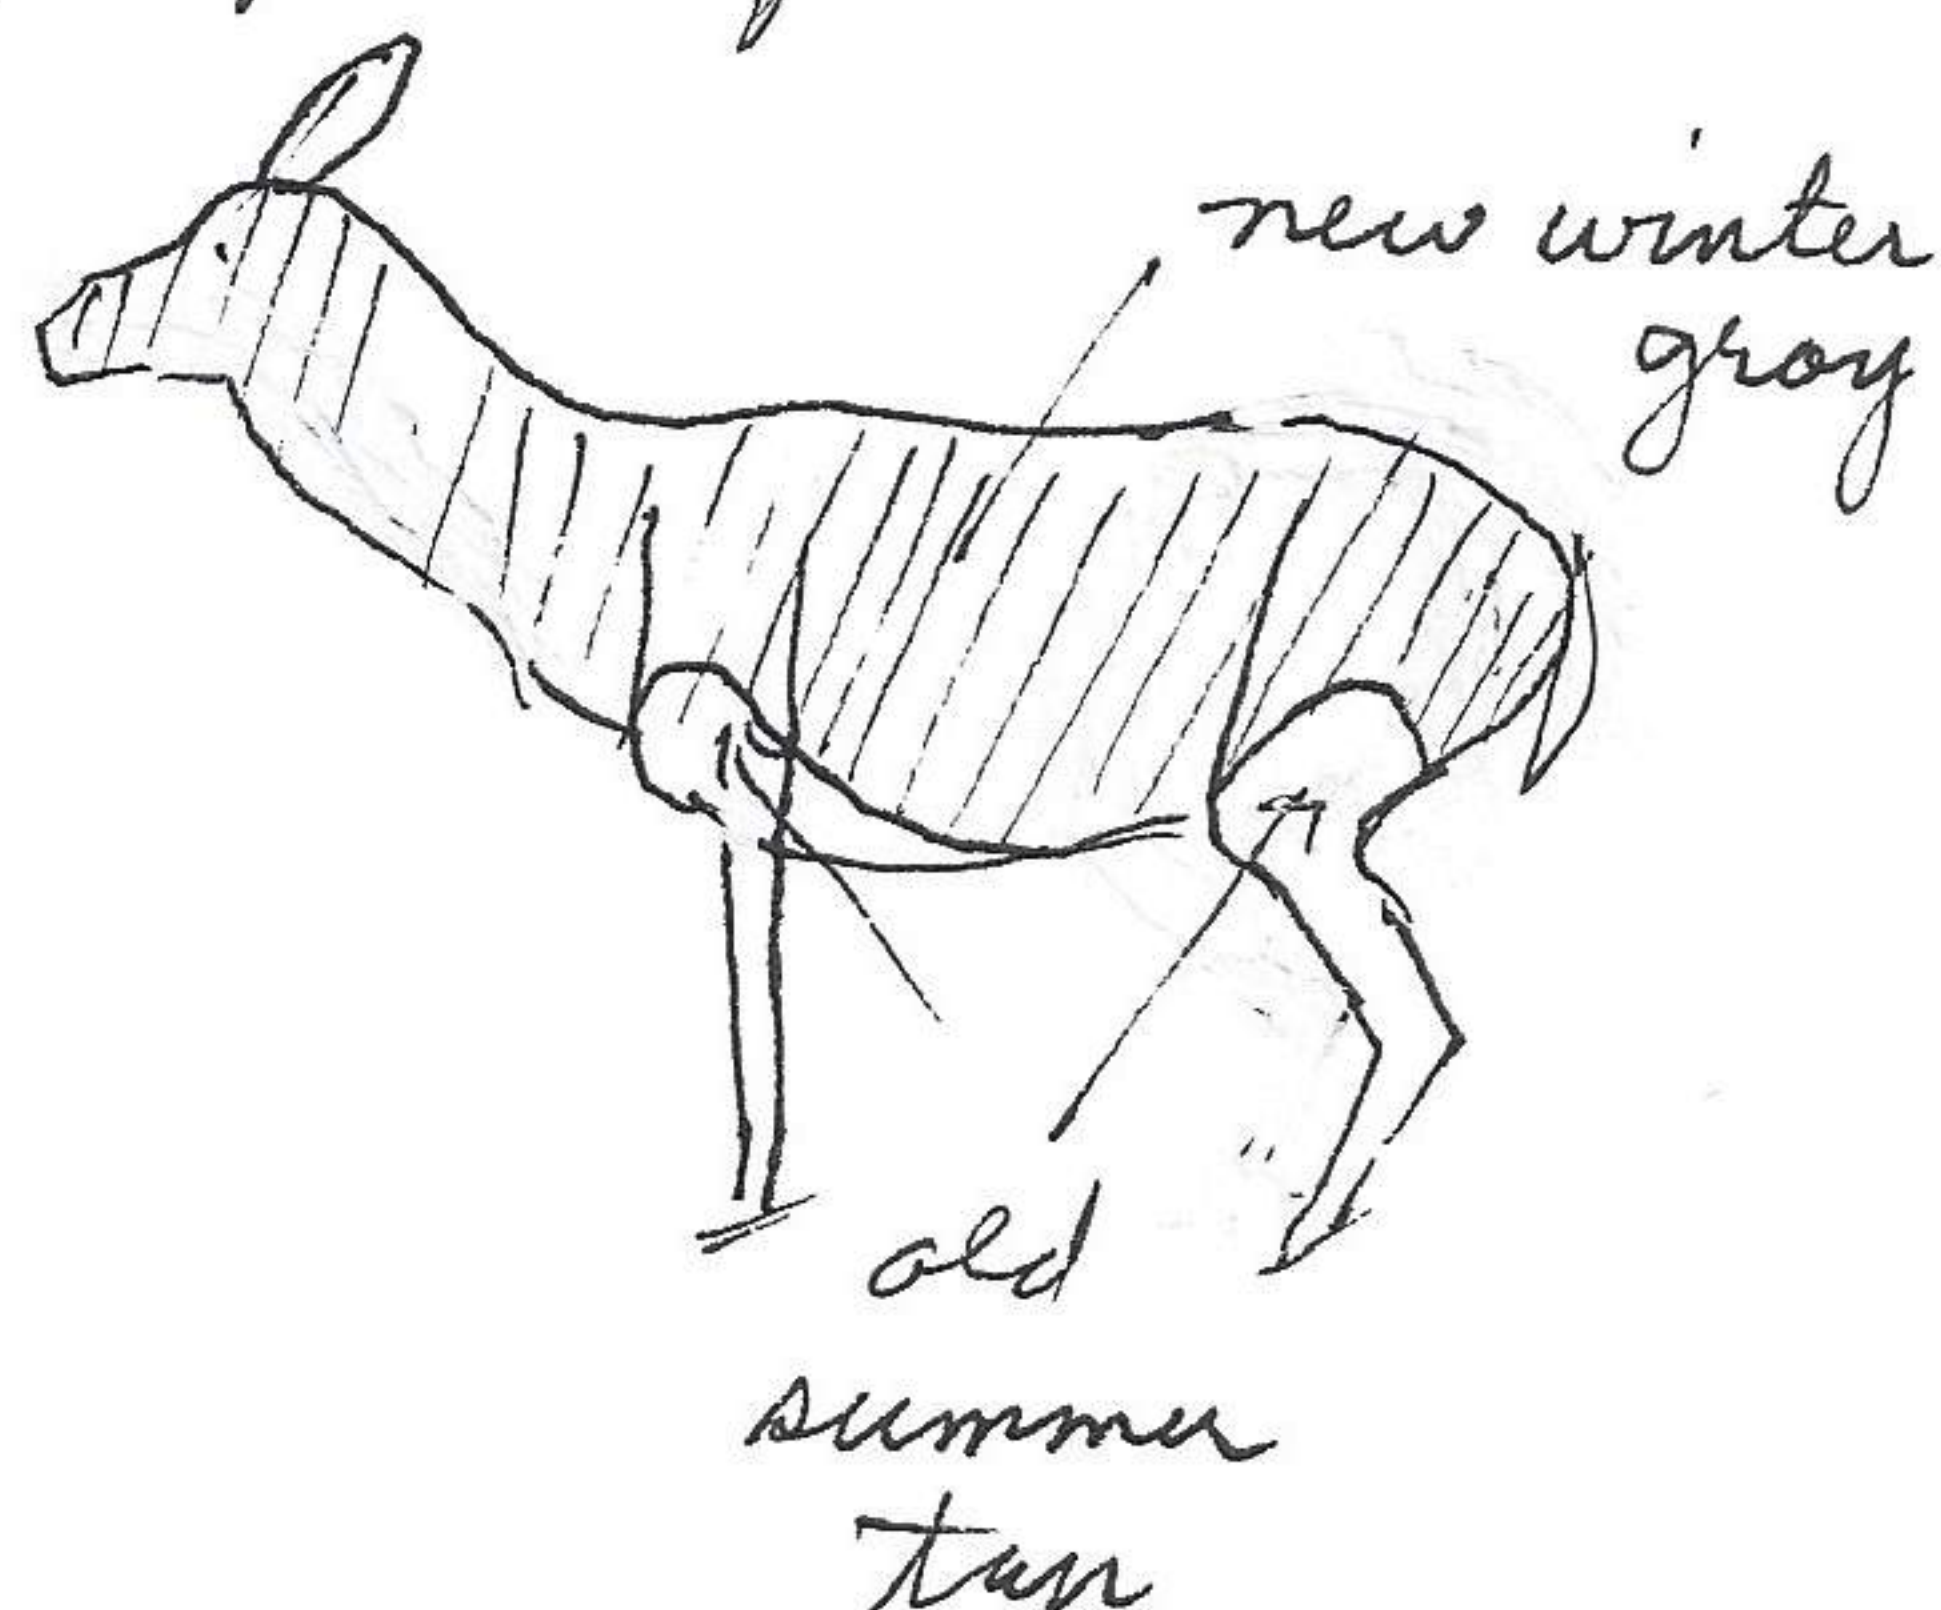 new winter
gray
old
summer
tan